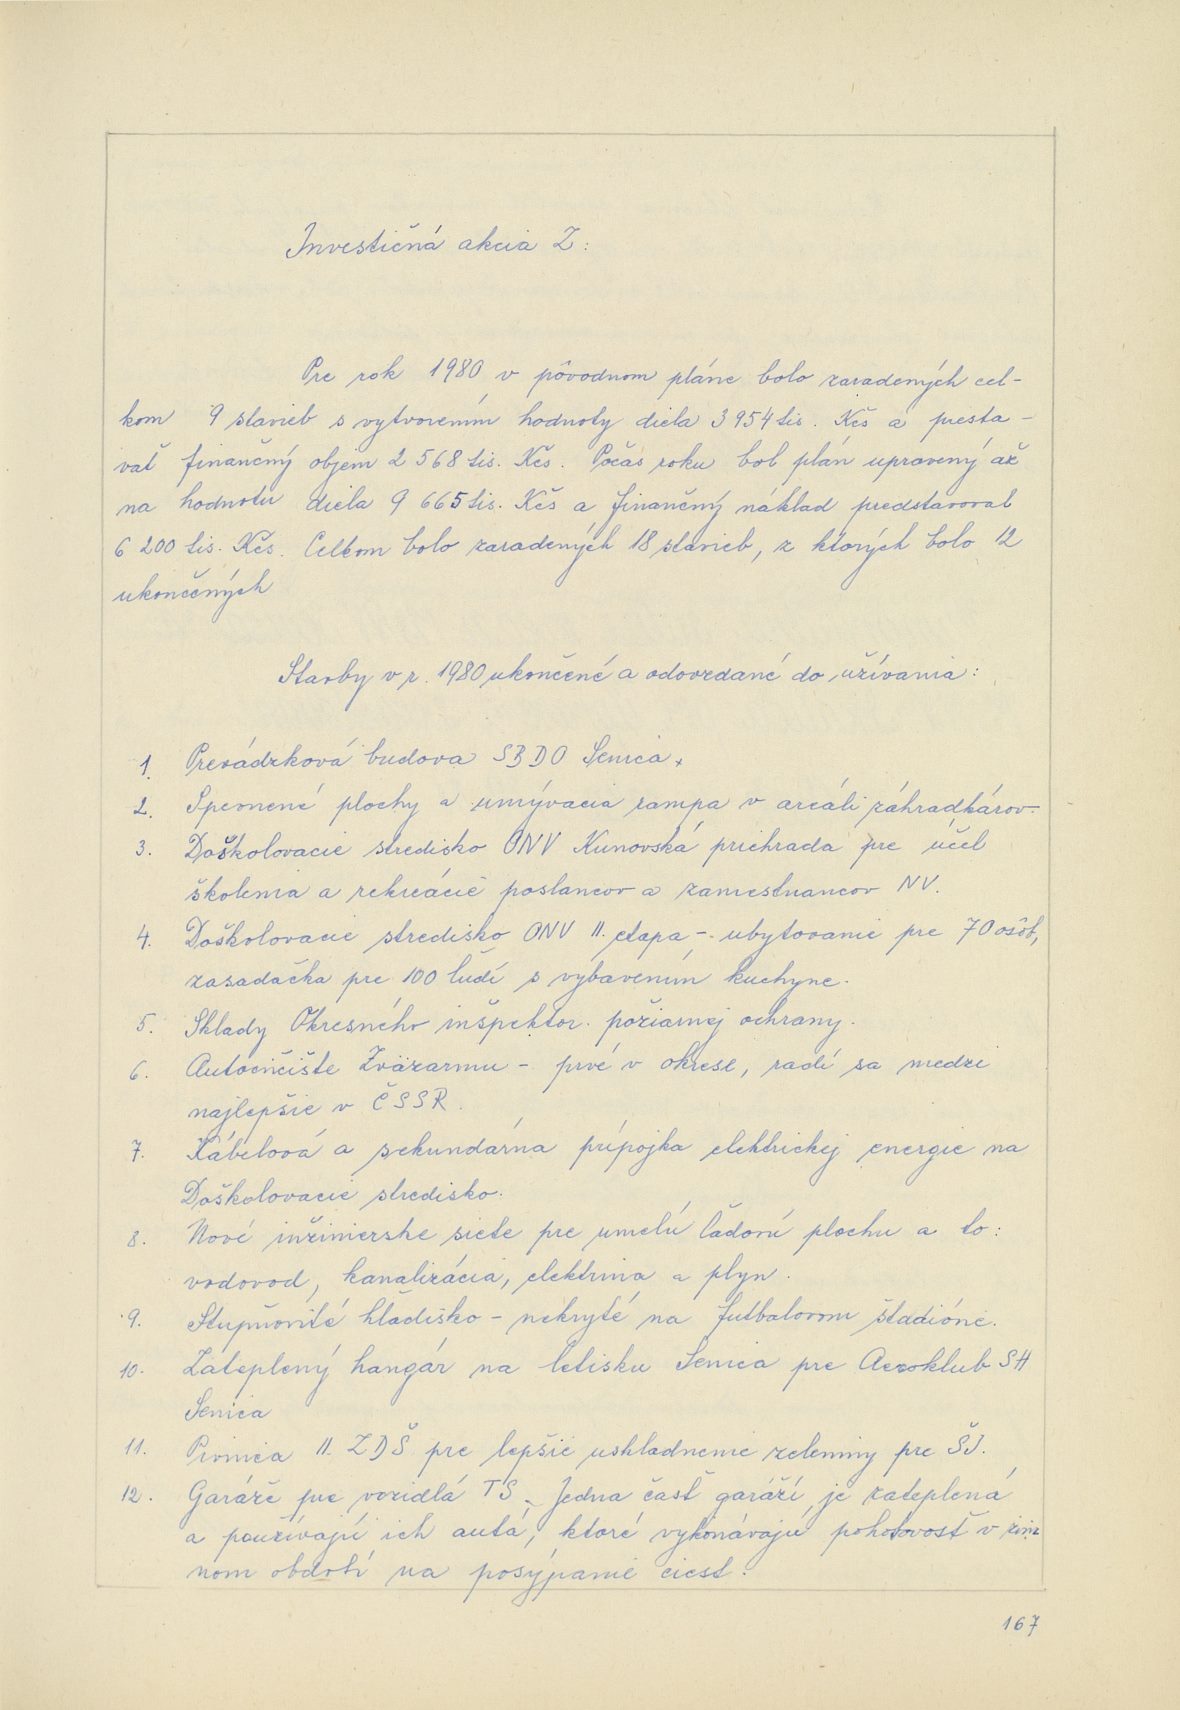 Investičná akcia Z:
Pre rok 1980 v pôvodnom pláne bolo zaradených cel-
kom 9 stavieb s vytvorením hodnoty diela 3 954 tis. Kčs a presta-
vať finančný objem 2 568 tis. Kčs. Počas roku bol plán upravený až
na hodnotu diela 9 665 tis. Kčs a finančný náklad predstavoval
6 200 tis. Kčs. Celkom bolo zaradených 18 stavieb, z ktorých bolo 12
ukončených
Stavby v r. 1980 ukončené a odovzdané do užívania:
1. Prevádzková budova SBDO Senica.
2. Spevnené plochy a umývacia rampa v areáli záhradkárov.
3. Doškolovacie stredisko ONV Kunovská priehrada pre účel
školenia a rekreácie poslancov a zamestnancov NV.
4. Doškolovacie stredisko ONV II. etapa - ubytovanie pre 70 osôb,
zasadačka pre 100 ľudí s vybavením kuchyne.
5. Sklady Okresného inšpektor. požiarnej ochrany.
6. Autocvičište Zväzarmu - prvé v okrese, radí sa medzi
najlepšie v ČSSR.
7. Kábelová a sekundárna prípojka elektrickej energie na
Doškolovacie stredisko.
8. Nové inžinierske siete pre umelú ľadovú plochu a to:
vodovod, kanalizácia, elektrina a plyn.
9. Stupňovité hľadisko - nekryté na futbalovom štadióne.
10. Zateplený hangár na letisku Senica pre Aeroklub SH
Senica
11. Pivnica II. ZDŠ pre lepšie uskladnenie zeleniny pre ŠJ.
12. Garáže pre vozidlá TS. Jedna časť garáží je zateplená
a používajú ich autá, ktoré vykonávajú pohotovosť v zim
nom období na posýpanie ciest.
167